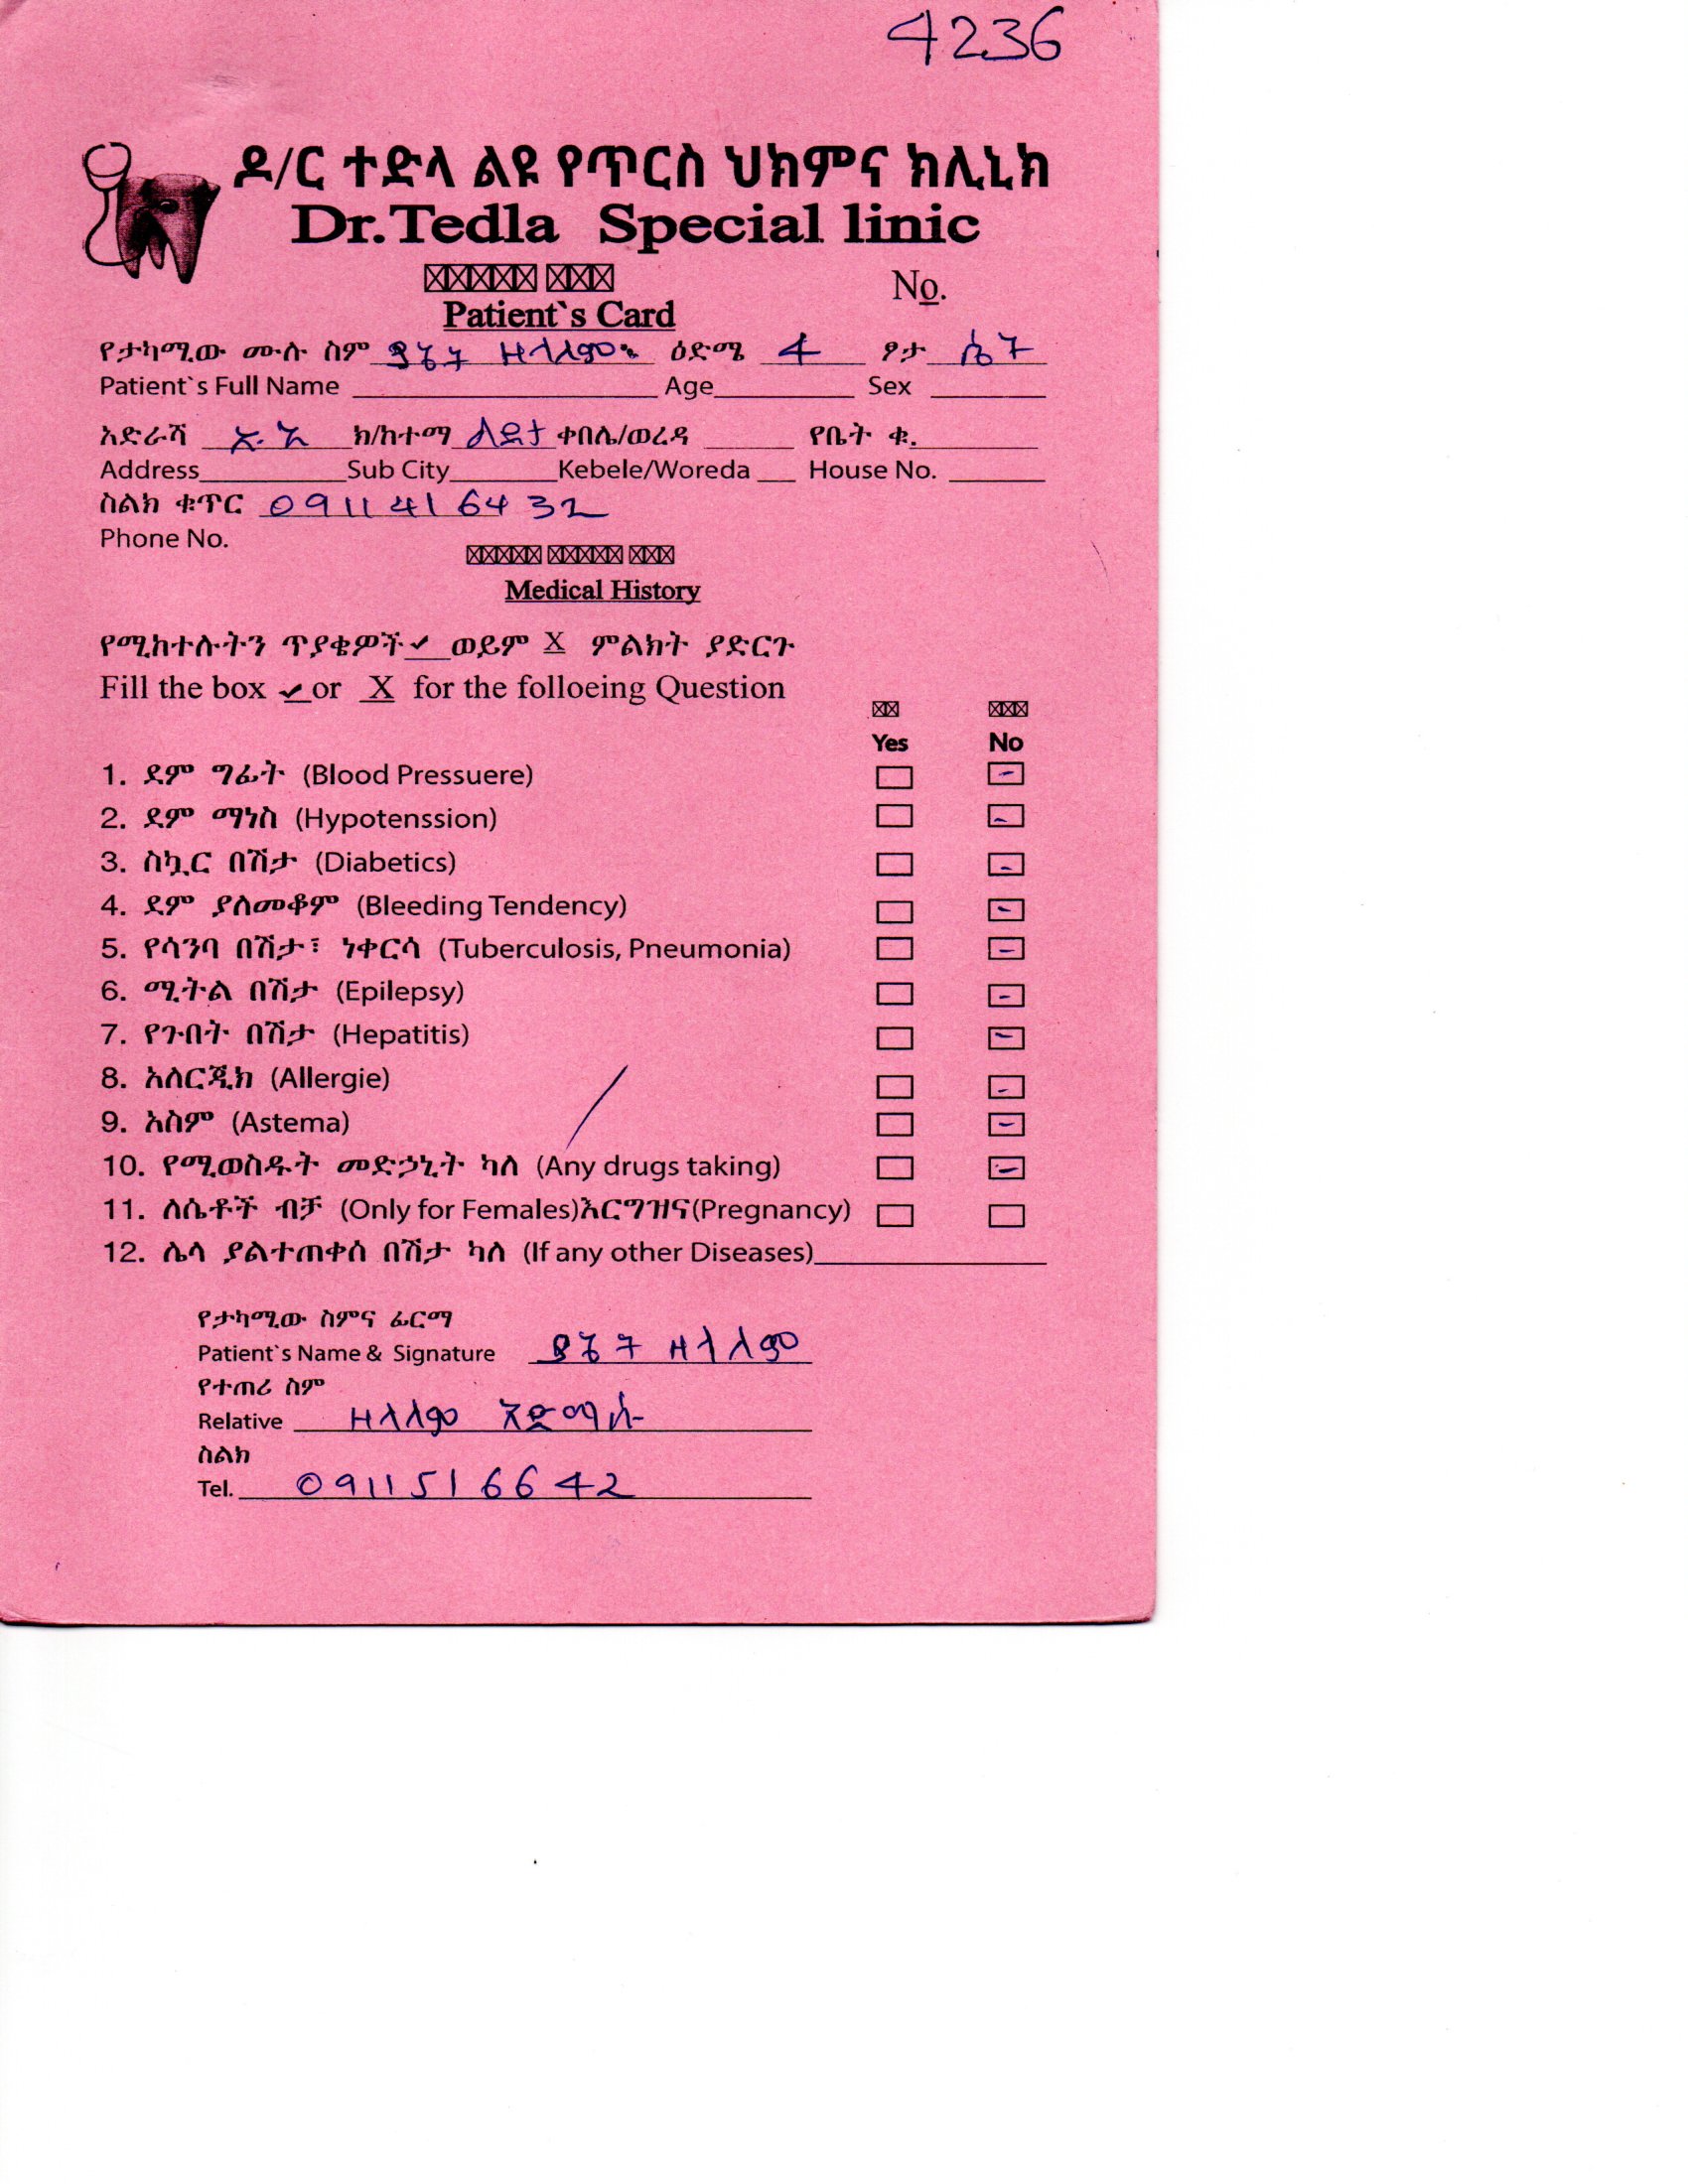 4236
ዶ/ር ተድላ ልዩ የጥርስ ህክምና ክሊኒክ
Dr.Tedla Special linic
No.
Patient`s Card
የታካሚው ሙሉ ስም ዘላለም ዕድሜ 4 ፆታ ሴት
Patient`s Full Name Age Sex
አድራሻ አ.አ ክ/ከተማ ልደታ ቀበሌ/ወረዳ የቤት ቁ.
Address Sub City Kebele/Woreda House No.
ስልክ ቁጥር 0911416432
Phone No.
Medical History
የሚከተሉትን ጥያቄዎች ✓ ወይም X ምልክት ያድርጉ
Fill the box ✓ or X for the folloeing Question
Yes No
1. ደም ግፊት (Blood Pressuere) -
2. ደም ማነስ (Hypotenssion) -
3. ስኳር በሽታ (Diabetics) -
4. ደም ያለመቆም (Bleeding Tendency) -
5. የሳንባ በሽታ፣ ነቀርሳ (Tuberculosis, Pneumonia) -
6. ሚትል በሽታ (Epilepsy) -
7. የጉበት በሽታ (Hepatitis) -
8. አለርጂክ (Allergie) -
9. አስም (Astema) -
10. የሚወስዱት መድኃኒት ካለ (Any drugs taking) -
11. ለሴቶች ብቻ (Only for Females)እርግዝና(Pregnancy)
12. ሌላ ያልተጠቀሰ በሽታ ካለ (If any other Diseases)
የታካሚው ስምና ፊርማ
Patient`s Name & Signature ዘላለም
የተጠሪ ስም
Relative ዘላለም አድማሱ
ስልክ
Tel. 0911516642